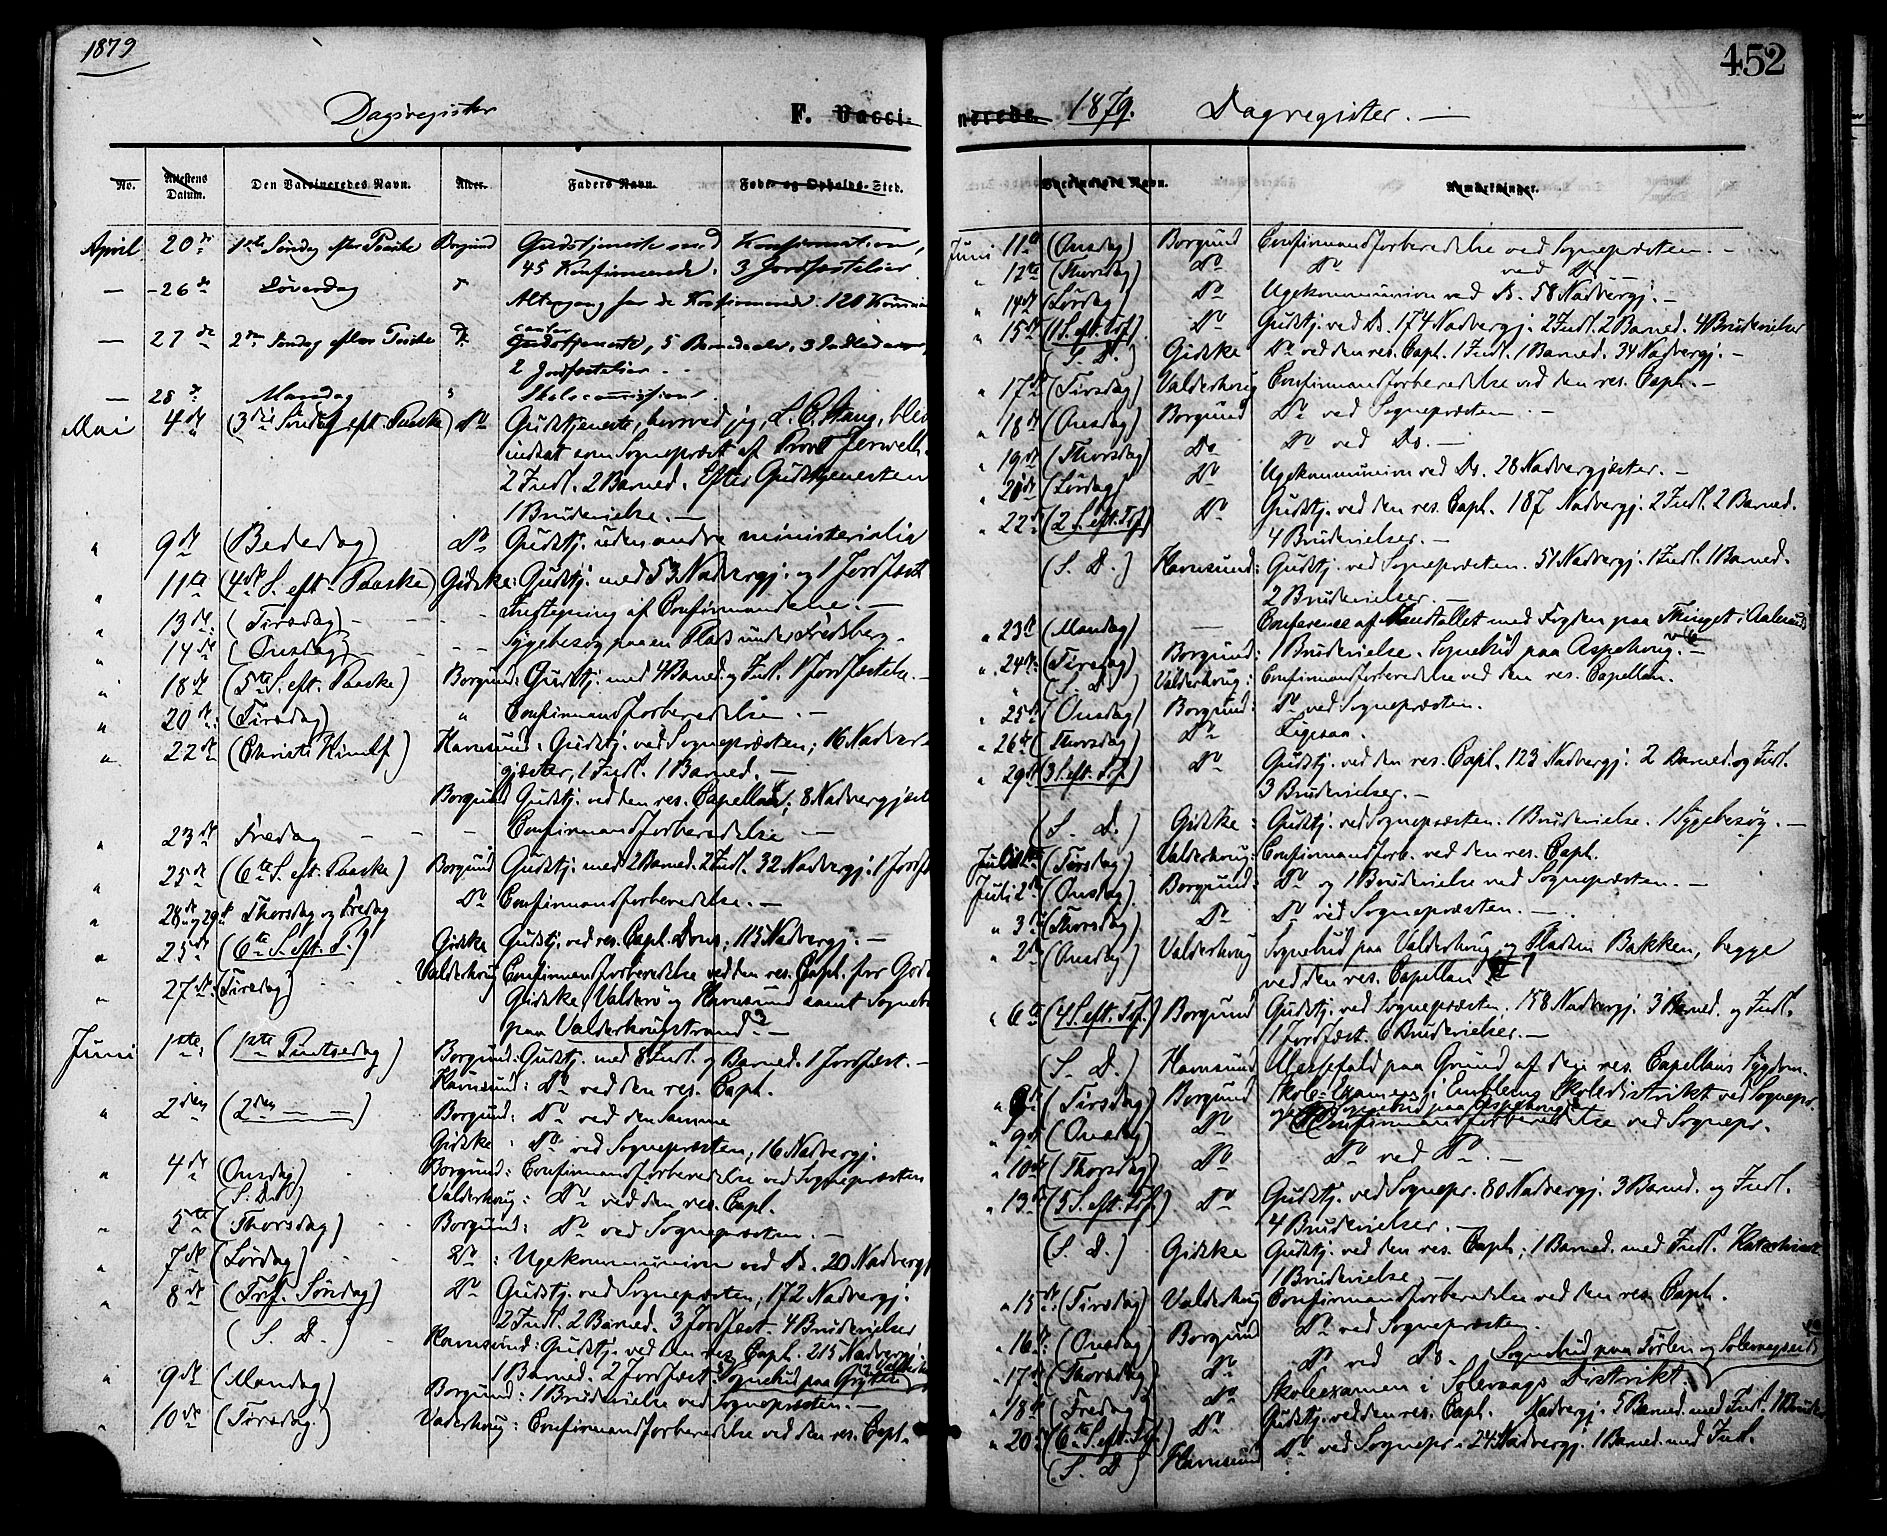 1879
Dagsregister F. Vacci-
No. Attestens Datum. Den Vaccineredes Navn. Alder. Faders Navn. Føde- og Opholds-Sted.
April 20de 1ste Søndag efter Paaske Borgund Gudstjeneste med Konfirmation,
45 Konfirmerede. 3 Jordfæstelser
— 26de Løverdag Altergang for de Konfirmerede. 120
— 27de 2den Søndag efter Paaske Gudstjeneste, 5 Barnedaab, 3
2 Jordfæstelser.
— 28de Mandag Skolecommission.
Mai 4de (3die Søndag eft. Paaske) Do Gudstjeneste, hvorved jeg, blev
indsat som Sognepræst af Provst Jervell.
2 Indl. 2 Barned. Efter Gudstjenesten
1 Brudevielse. —
" 9de (Bededag) Do Gudstj. uden andre ministerialia
" 11te (4de S. eft. Paaske) Gidske: Gudstj. med 53 Nadvergj. og 1 Jordfæst
" 13de: (Tirsdag) - - - Indtegning af Confirmanderne. —
" 14de (Onsdag) - - - Sygebesøg paa en Plads under Fredsberg.
" 18de (5te S. eft. Paaske) Borgund: Gudstj. med 4 Barned. og Indl. 1 Jordfæstelse. —
" 20de: (Tirsdag) " Confirmandforberedelse. —
" 22de (Christi Himlf.) Havnsund: Gudstj. ved Sognepræsten; 16 Nadver-
gjæster, 1 Indl. 1 Barned. —
Borgund Gudstj. ved den res. Capellan; 8 Nadvergjæst
" 23de Fredag - - - Confirmandforberedelse —
" 25de (6te S. eft. Paaske) Borgund Gudstj. med 2 Barned. 2 Indl. 32 Nadvergj. 1 Jordf
" 28de og 29de Thorsdag og Fredag Do Confirmandforberedelse. —
" 25de (6te S. eft. P.) Gidske Gudstj. ved res. Capl. Dons; 113 Nadvergj. —
" 27de: (Tirsdag) - - Valderhoug Confirmandforberedelse ved den res. Capl. for
Gidske, Valderø og Havnsund samt Sogneb
paa Valderhougstrand —
Juni 1ste: (1ste Pintsedag) Borgund: Gudstj. med 8 Indl. og Barned. 1 Jordfæst. —
Havnsund: Do ved den res. Capl.
" 2den (2den — —) Borgund: Do ved den samme
Gidske: Do ved Sognepræsten, 16 Nadvergj.
" 4de (Onsdag) Borgund: Confirmandforberedelse ved Sognepræsten
(S. D.) Valderhoug: Do ved den res. Capl.
" 5te (Thorsdag) Borgund: Do ved Sognepræsten. —
" 7de (Lørdag) Do: Ugekommunion ved Ds. 20 Nadvergj
" 8de (Trf. Søndag) Do Gudstj. ved Sognepræsten, 172 Nadvergj.
2 Indl. 2 Barned. 3 Jordfæst. 4 Brudevielser
(S. D.) Havnsund: Gudstj. ved den res. Capl. 215 Nadvergj.
1 Barned. 2 Jordfæst. Sognebud paa
" 9de (Mandag) Borgund: 1 Brudevielse ved Sognepræsten. —
" 10de (Tirsdag) Vaderhoug: Confirmandforberedelse ved den res. Capl.
452
nerede. 1879. Dagregister. —
Vaccinørens Navn. Anmærkninger.
Juni 11te (Onsdag) Borgund Confirmandforberedelse ved Sognepræsten. —
" 12te (Thorsdag) Do Do ved Ds
" 14de (Lørdag) Do Ugekommunion ved Ds. 58 Nadvergj. —
" 15de (1 S. eft. Trf.) Do Gudstj. ved Ds. 174 Nadvergj. 2 Indl. 2 Barned. 4 Brudevielser
(S. D.) Gidske Do ved den res. Capl. 1 Indl. 1 Barned. 34 Nadvergj. —
" 17de (Tirsdag) Valderhoug Confirmandforberedelse ved den res. Capl. —
" 18de (Onsdag) Borgund Do ved Sognepræsten. —
" 19de (Thorsdag) Do Do ved Ds. —
" 20de (Lørdag) Do Ugekommunion ved Ds. 28 Nadvergjæster. —
" 22de (2 S. eft. Trf) Do Gudstj. ved den res. Capl. 187 Nadvergj. 2 Indl. 2 Barned.
4 Brudevielser. —
(S. D.) Havnsund: Gudstj. ved Sognepræsten. 51 Nadvergj. 1 Indl. 1 Barned.
2 Brudevielser. —
" 23de (Mandag) — Conference af Mandtallet med Fogden paa Thinget i Aalesund
" 24de: (Tirsdag) Borgund: 1 Brudevielse. Sognebud paa Aspehoug. —
" (S. D.) Valderhoug: Confirmandforberedelse ved den res. Capellan.
" 25de (Onsdag) Borgund: Do ved Sognepræsten.
" 26de (Thorsdag) Do Ligesaa.
" 29de (3 S. eft. Trf.) Do Gudstj. ved den res. Capl. 123 Nadvergj. 2 Barned. og Indl.
3 Brudevielser. —
(S. D.) Gidske: Gudstj. ved Sognepræsten. 1 Brudevielse. 1 Sygebesøg. —
Juli 1ste (Tirsdag) Valderhoug: Confirmandforb. ved den res. Capl.
Juli 2de (Onsdag) Borgund: Do og 1 Brudevielse ved Sognepræsten. —
" 3de (Thorsdag) Do Do ved Sognepræsten. —
" 2de (Onsdag) Valderhoug Sognebud paa Valderhoug og Pladsen Bakken, begge
ved den res. Capellan
" 6te (4 S. eft. Trf.) Borgund Gudstj. ved Sognepræsten. 158 Nadvergj. 3 Barned. og Indl.
1 Jordfæst. 6 Brudevielser. —
(S. D.) Havnsund Messefald paa Grund af den res. Capellans Sygdom.
" 8de (Tirsdag) Borgund Skole-Examen i Emblems Skoledistrikt ved Sognepr.
og Sognebud paa Aspehoug
" 9de (Onsdag) Do Confirmandforberedelse ved Sognepr.
" 10de (Thorsdag) Do Do ved Do. —
" 13de (5 S. eft. Trf.) Do Gudstj. ved Sognepr. 80 Nadvergj. 3 Barned. og Indl.
4 Brudevielser. —
(S. D.) Gidske Gudstj. ved den res. Capl; 1 Barned. med Indl.
1 Brudevielse. —
" 15de (Tirsdag) Valderhoug Confirmandforberedelse ved den res. Capl.
" 16de: (Onsdag) Borgund Do ved Sognepræsten.
" 17de (Thorsdag) Do Do ved Ds. Sognebud paa og
" 18de (Fredag) Do Skoleexamen i Solevaags Distrikt.
" 20de (6te S. eft. Trf.) Do Gudstj. ved den res. Capl. Nadvergj. 5 Barned. med Indl.
(S. D) Havnsund Do ved Sognepr. 24 Nadvergj. 1 Barned. med Indl.